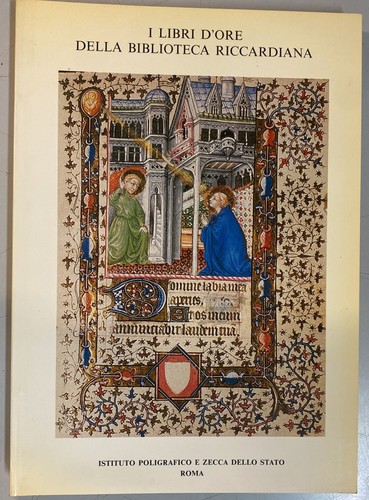 I LIBRI D'ORE
DELLA BIBLIOTECA RICCARDIANA
Domine labia mea
aperies,
Et os meum
annunciabit laudem tua,
ISTITUTO POLIGRAFICO E ZECCA DELLO STATO
ROMA